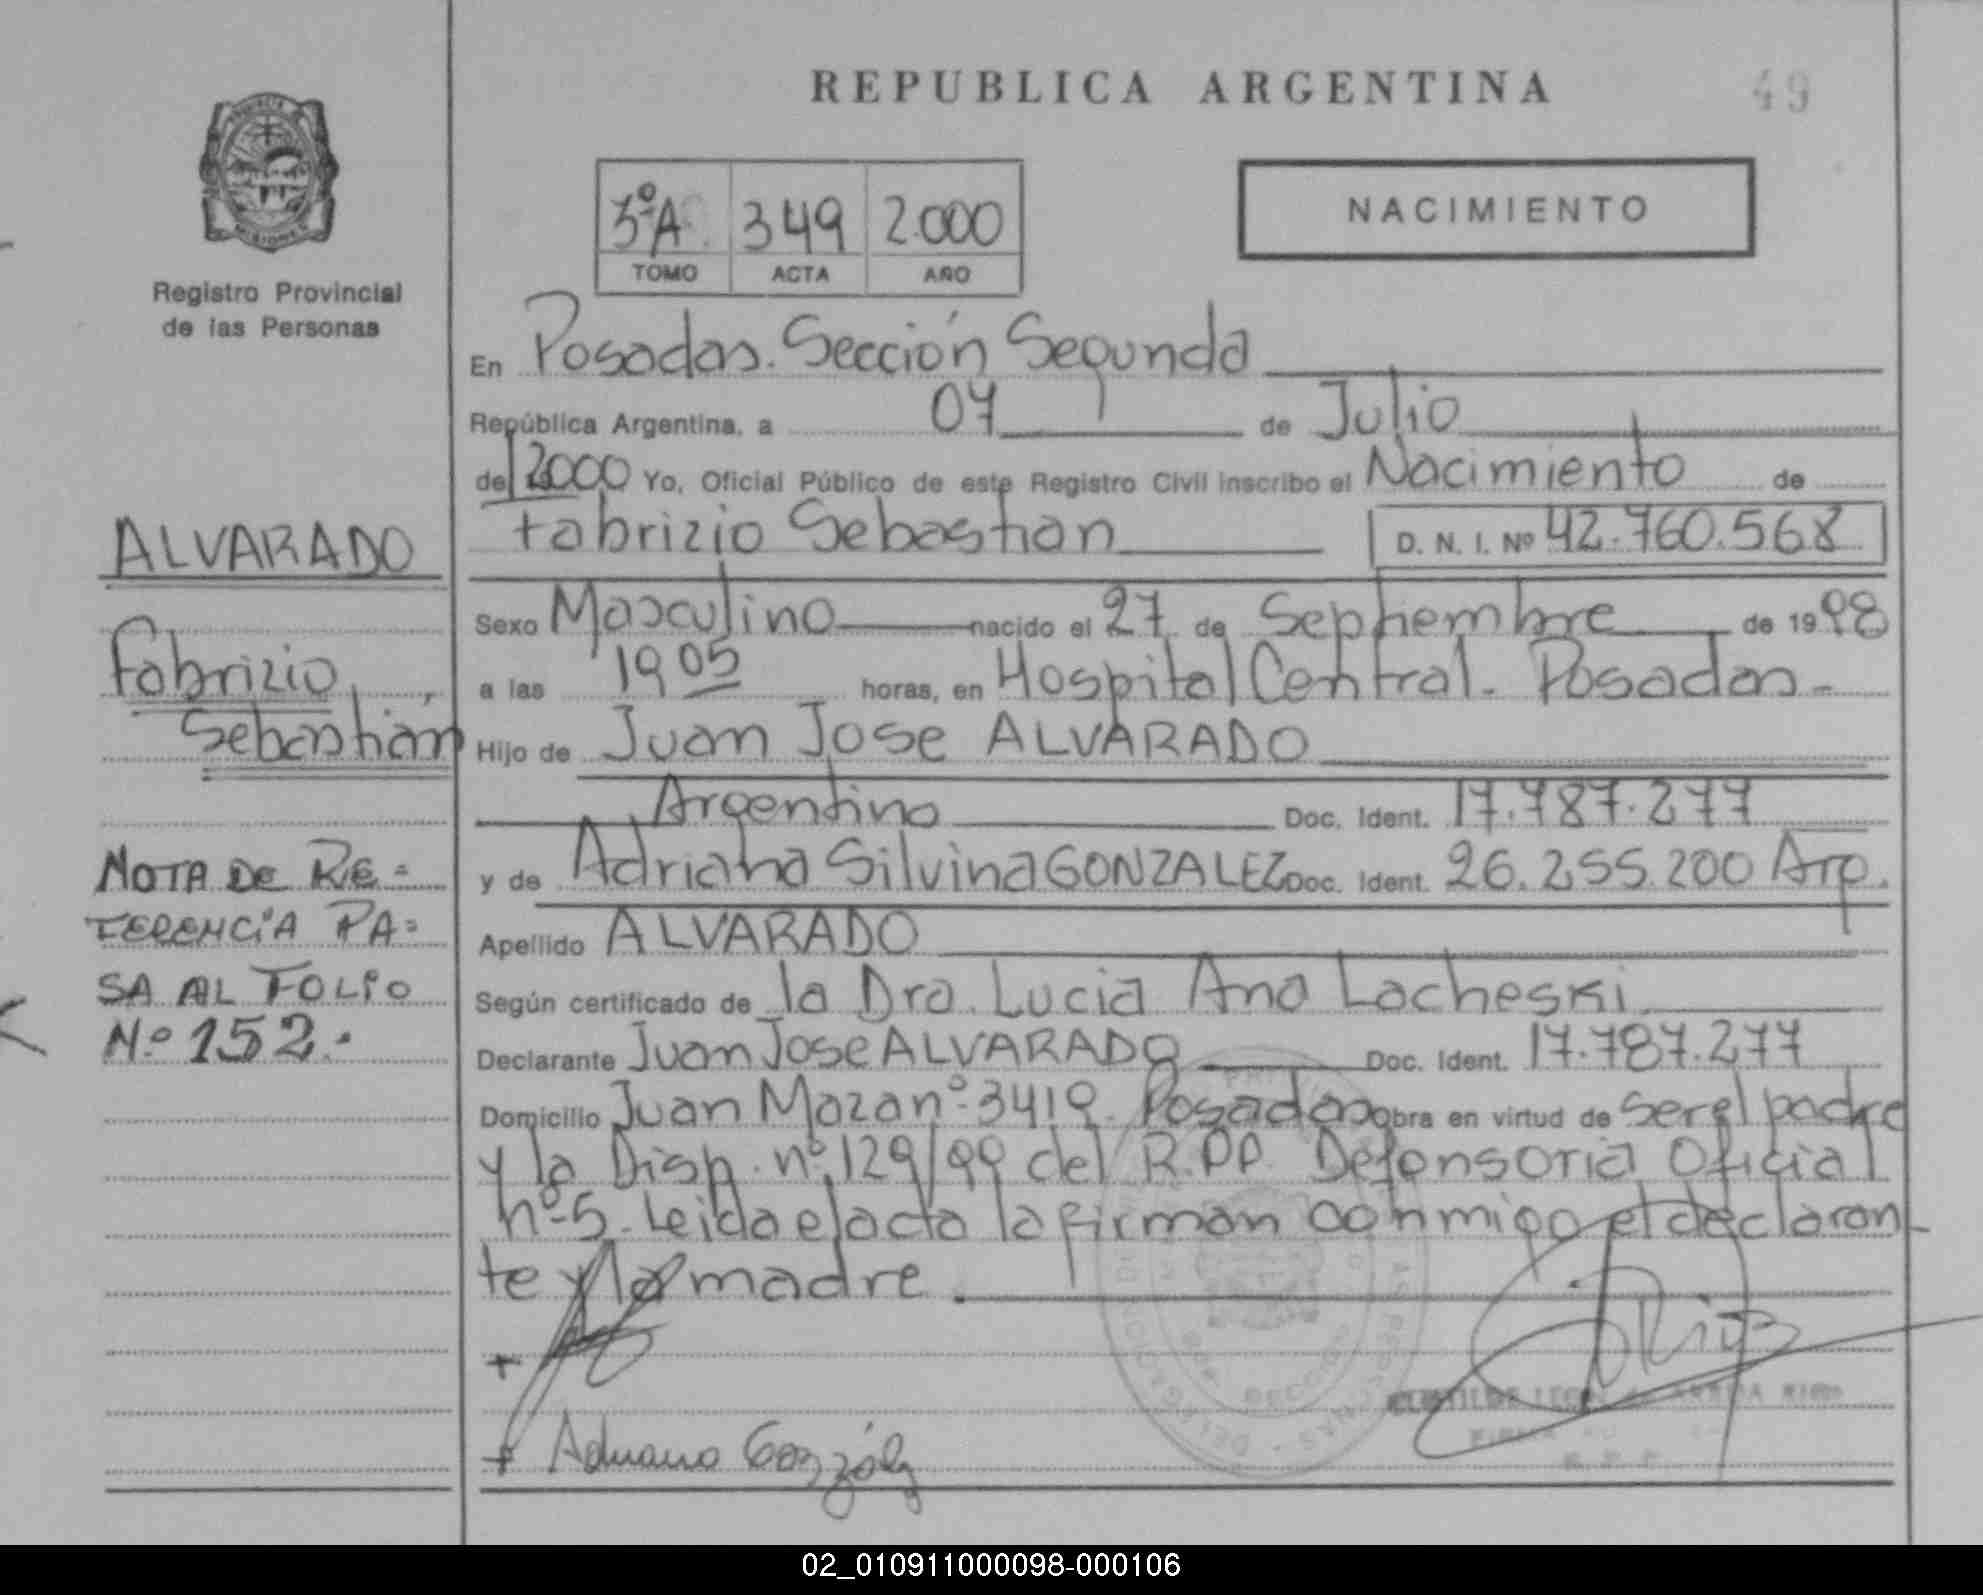 REPUBLICA ARGENTINA
49
PROVINCIA
MISIONES
Registro Provincial
de las Personas
3ºA 349 2.000
TOMO ACTA AÑO
NACIMIENTO
En Posadas. Sección Segunda
República Argentina, a 07 de Julio
de 2000 Yo, Oficial Público de este Registro Civil inscribo el Nacimiento de
Fabrizio Sebastian D. N. I. Nº 42.760.568
Sexo Masculino nacido el 27 de Septiembre de 1998
a las 19 05 horas, en Hospital Central. Posadas-
Hijo de Juan Jose ALVARADO
Argentino Doc. Ident. 17.787.277
y de Adriana Silvina GONZALEZ Doc. Ident. 26.255.200 Arg.
Apellido ALVARADO
Según certificado de la Dra. Lucia Ana Lacheski
Declarante Juan Jose ALVARADO Doc. Ident. 17.787.277
Domicilio Juan Moza nº 3419. Posadas obra en virtud de ser el padre
y la Disp. nº 129/99 del R.P.P. Defensoria Oficial
nº 5. Leida el acta la firman conmigo el declaran-
te y la madre.
ALVARADO
Fabrizio,
Sebastián
NOTA DE RE=
FERENCIA PA=
SA AL FOLIO
Nº 152.
+
+ Adriana González
02_010911000098-000106